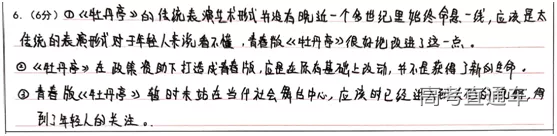 6.(6分)①《牡丹亭》的传统表演艺术形式并没有晚近一个多世纪里始终命悬一线,应该是太
传统的表演形式对于年轻人来说看不懂,青春版《牡丹亭》很好地改进了这一点。
②《牡丹亭》在政策资助下打造成青春版,应是在原有基础上改动,并不是获得了新的生命。
③青春版《牡丹亭》暂时未站在当代社会舞台中心,应该时已经进 的 ,得
到了年轻人的关注。
高考直通车